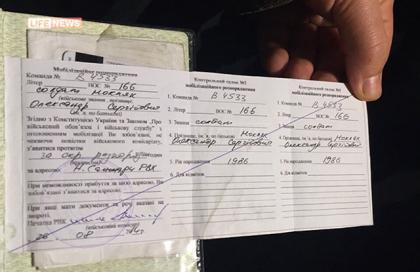 LIFE NEWS
Мобілізаційне розпорядження
Команда № В 4533
Літер ВОС № 166
солдат Москяк
(військове звання, прізвище)
Олександр Сергійович
(ім'я, по батькові)
Згідно з Конституцією України та Законом „Про
військовий обов'язок і військову службу” з
оголошенням мобілізації Ви зобов'язані,
військового комісаріату,
з'явитися
за окр. розпоряд
за адресою: РВК
При неможливості прибуття за цією адресою,
за адресою:
При явці мати документи та речі вказані на
звороті.
Начальник РВК
28. 08
Контрольний талон №1
мобілізаційного розпорядження
1. Команда № В 4533
2. Літер ВОС № 166
3. Звання солдат
4. Прізвище, ім'я, по батькові Москяк
Олександр Сергійович
5. Рік народження 1986
6. Для відмітки
Контрольний талон №2
мобілізаційного розпорядження
1. Команда № В 4533
2. Літер ВОС № 166
3. Звання солдат
4. Прізвище, ім'я, по батькові Москяк
Олександр Сергійович
5. Рік народження 1986
6. Для відмітки